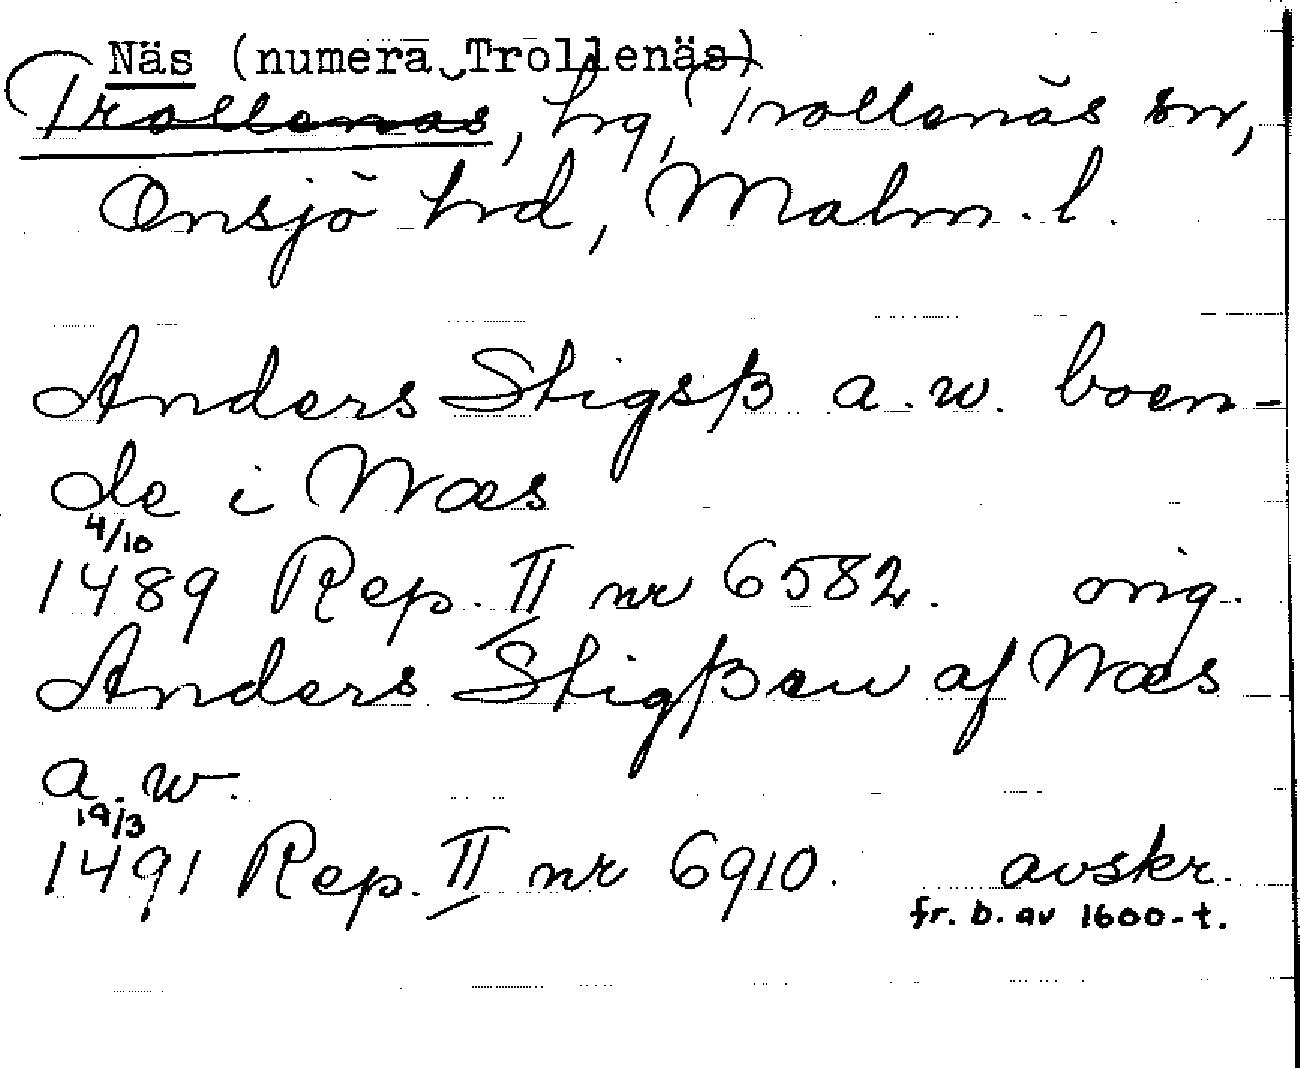 Näs (numera Trollenäs)
Trollenäs, hrg, Trollenäs sn,
Onsjö hrd, Malm. l.
Anders Stigsß a.w. boen-
de i Næs
4/10
1489 Rep. II nr 6582. orig.
Anders Stigßøn af Næs
a.w.
19/3
1491 Rep. II nr 6910. avskr.
fr. b. av 1600-t.